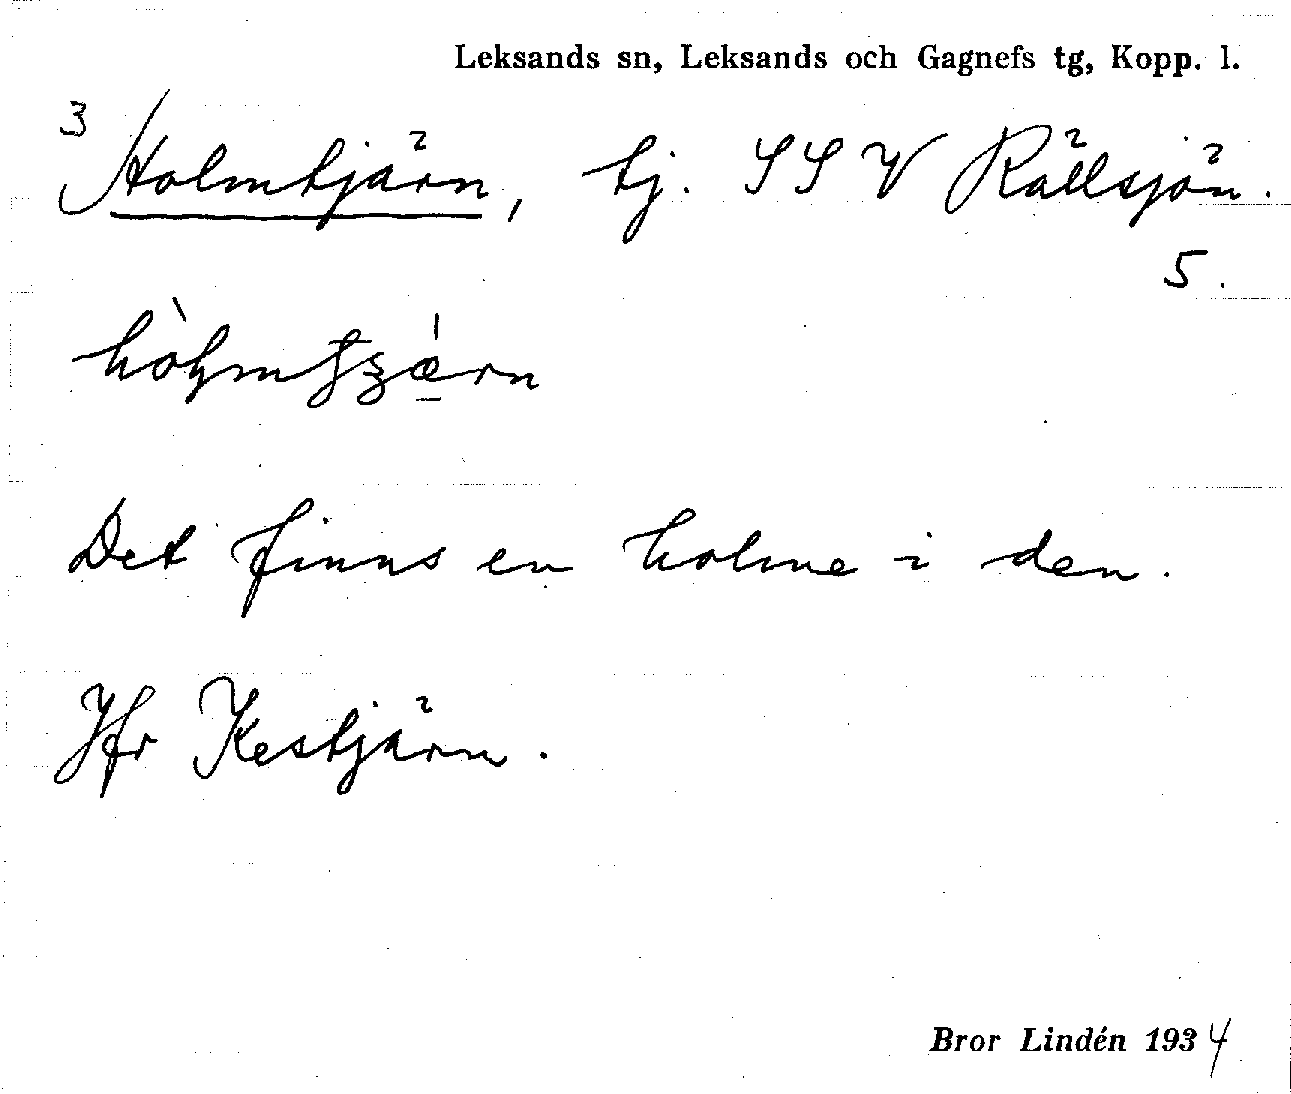 Leksands sn, Leksands och Gagnefs tg, Kopp. l.
3 Holmtjärn, tj. SSV Rällsjön.
5.
Det finns en holme i den.
Jfr Kestjärn.
Bror Lindén 1934